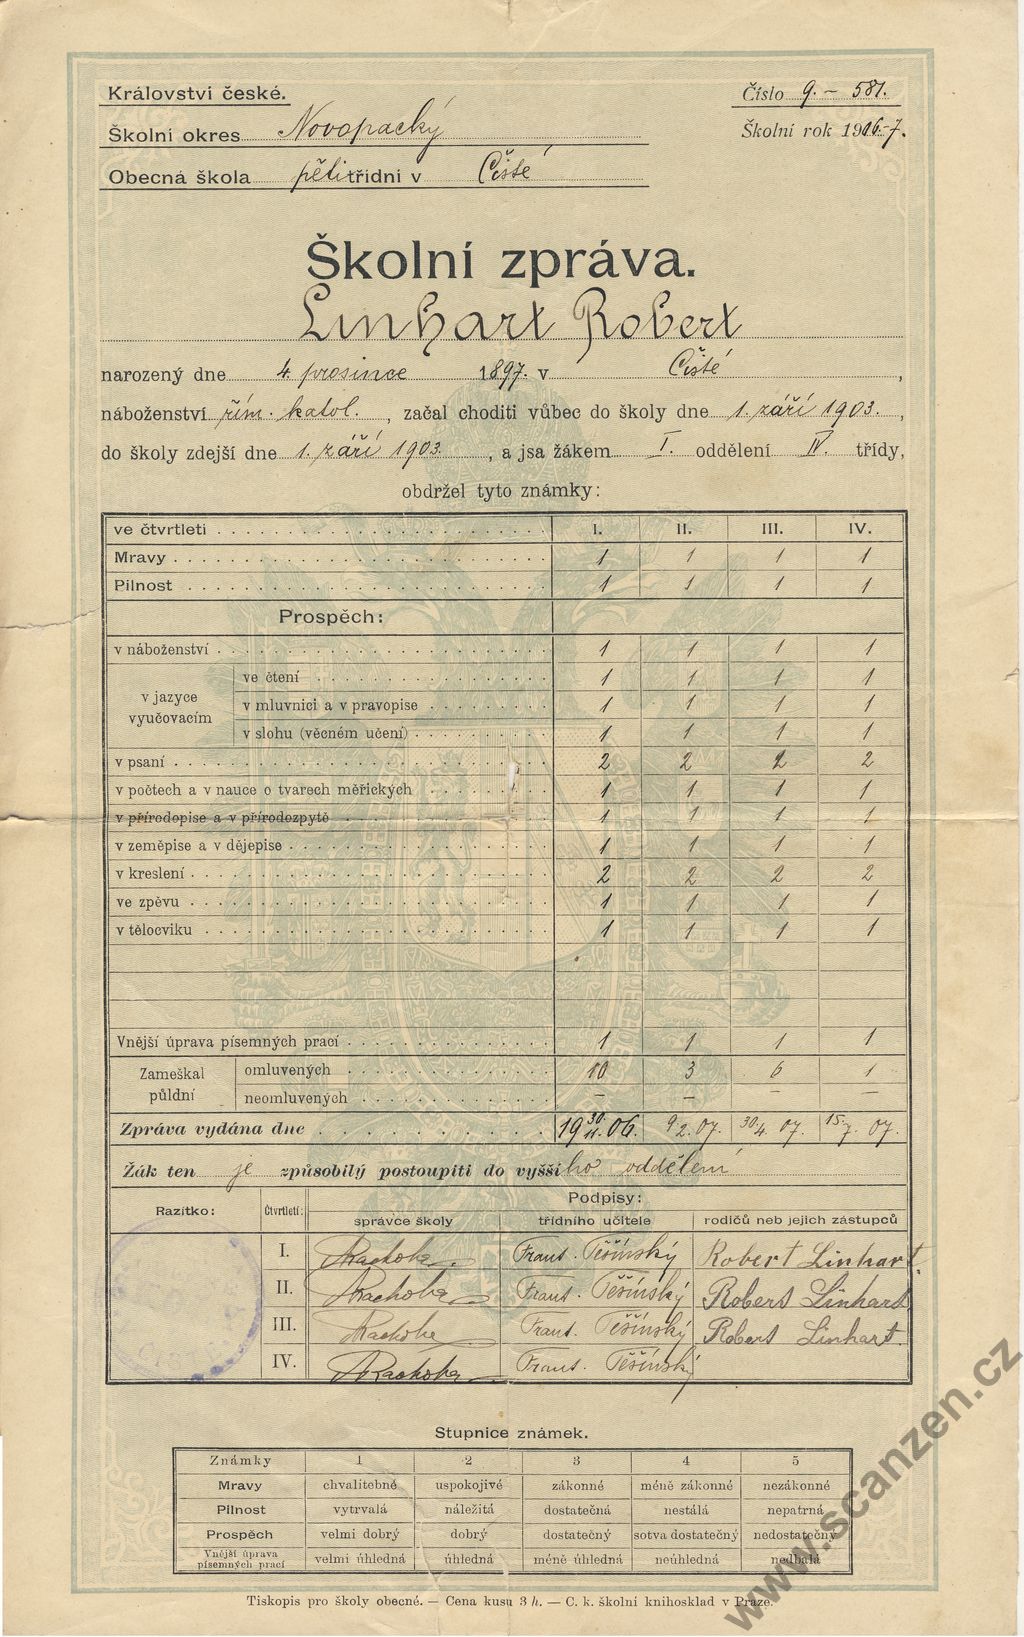 Království české.
Číslo 9. – 581.
Školní okres Novopacký
Školní rok 1906-7.
Obecná škola pětitřídní v Čisté
Školní zpráva.
Linhart Robert
narozený dne 4. prosince 1897. v Čisté,
náboženství řím. katol., začal choditi vůbec do školy dne 1. září 1903.,
do školy zdejší dne 1. září 1903., a jsa žákem I. oddělení IV. třídy,
obdržel tyto známky:
ve čtvrtletí I. II. III. IV.
Mravy 1 1 1 1
Pilnost 1 1 1 1
Prospěch:
v náboženství 1 1 1 1
v jazyce vyučovacím
ve čtení 1 1 1 1
v mluvnici a v pravopise 1 1 1 1
v slohu (věcném učení) 1 1 1 1
v psaní 2 2 2 2
v počtech a v nauce o tvarech měřických 1 1 1 1
v přírodopise a v přírodozpytě 1 1 1 1
v zeměpise a v dějepise 1 1 1 1
v kreslení 2 2 2 2
ve zpěvu 1 1 1 1
v tělocviku 1 1 1 1
Vnější úprava písemných prací 1 1 1 1
Zameškal půldní
omluvených 10 3 6 1
neomluvených – – –
Zpráva vydána dne 19 30/11. 06. 9 2. 07. 30/4. 07. 15./7. 07.
Žák ten je způsobilý postoupiti do vyššího oddělení
Razítko: Čtvrtletí: Podpisy:
správce školy třídního učitele rodičů neb jejich zástupců
I. Frant. Těšínský Robert Linhart.
II. Frant. Těšínský Robert Linhart
III. Frant. Těšínský Robert Linhart.
IV. Frant. Těšínský
Stupnice známek.
Známky 1 2 3 4 5
Mravy chvalitebné uspokojivé zákonné méně zákonné nezákonné
Pilnost vytrvalá náležitá dostatečná nestálá nepatrná
Prospěch velmi dobrý dobrý dostatečný sotva dostatečný nedostatečný
Vnější úprava písemných prací velmi úhledná úhledná méně úhledná neúhledná nedbalá
Tiskopis pro školy obecné. — Cena kusu 3 h. — C. k. školní knihosklad v Praze.
www.scanzen.cz